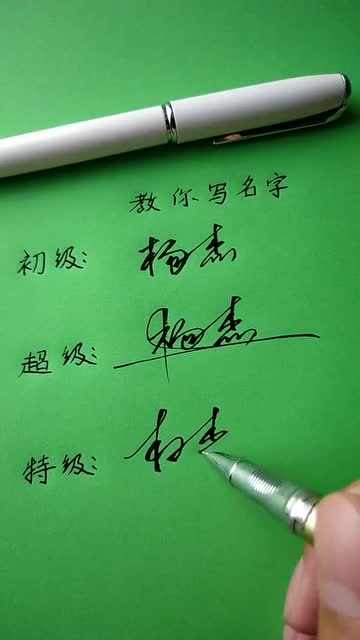 教你写名字
初级: 杨杰
超级: 杨杰
特级: 杨杰